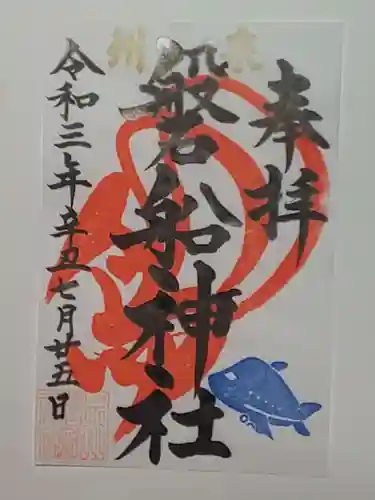 奉拝
磐船神社
令和三年辛丑七月廿五日